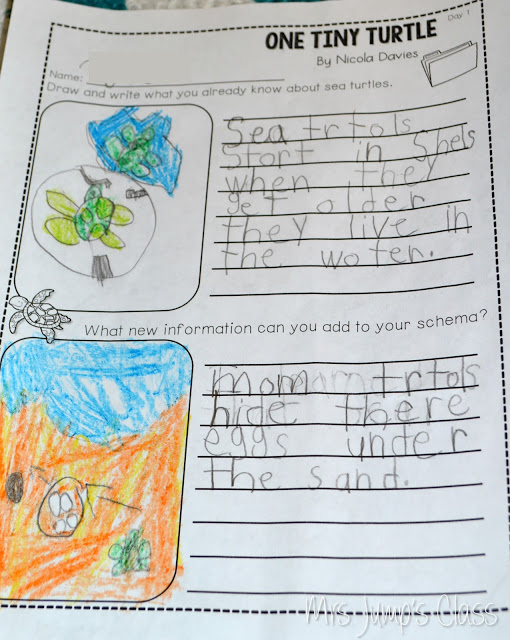 Day 1
ONE TINY TURTLE
By Nicola Davies
Name:
Draw and write what you already know about sea turtles.
Sea trtols
Stort in Shels
when they
get older
they live in
the woter.
What new information can you add to your schema?
mom trtols
hide there
eggs under
the sand.
Mrs Jump's Class